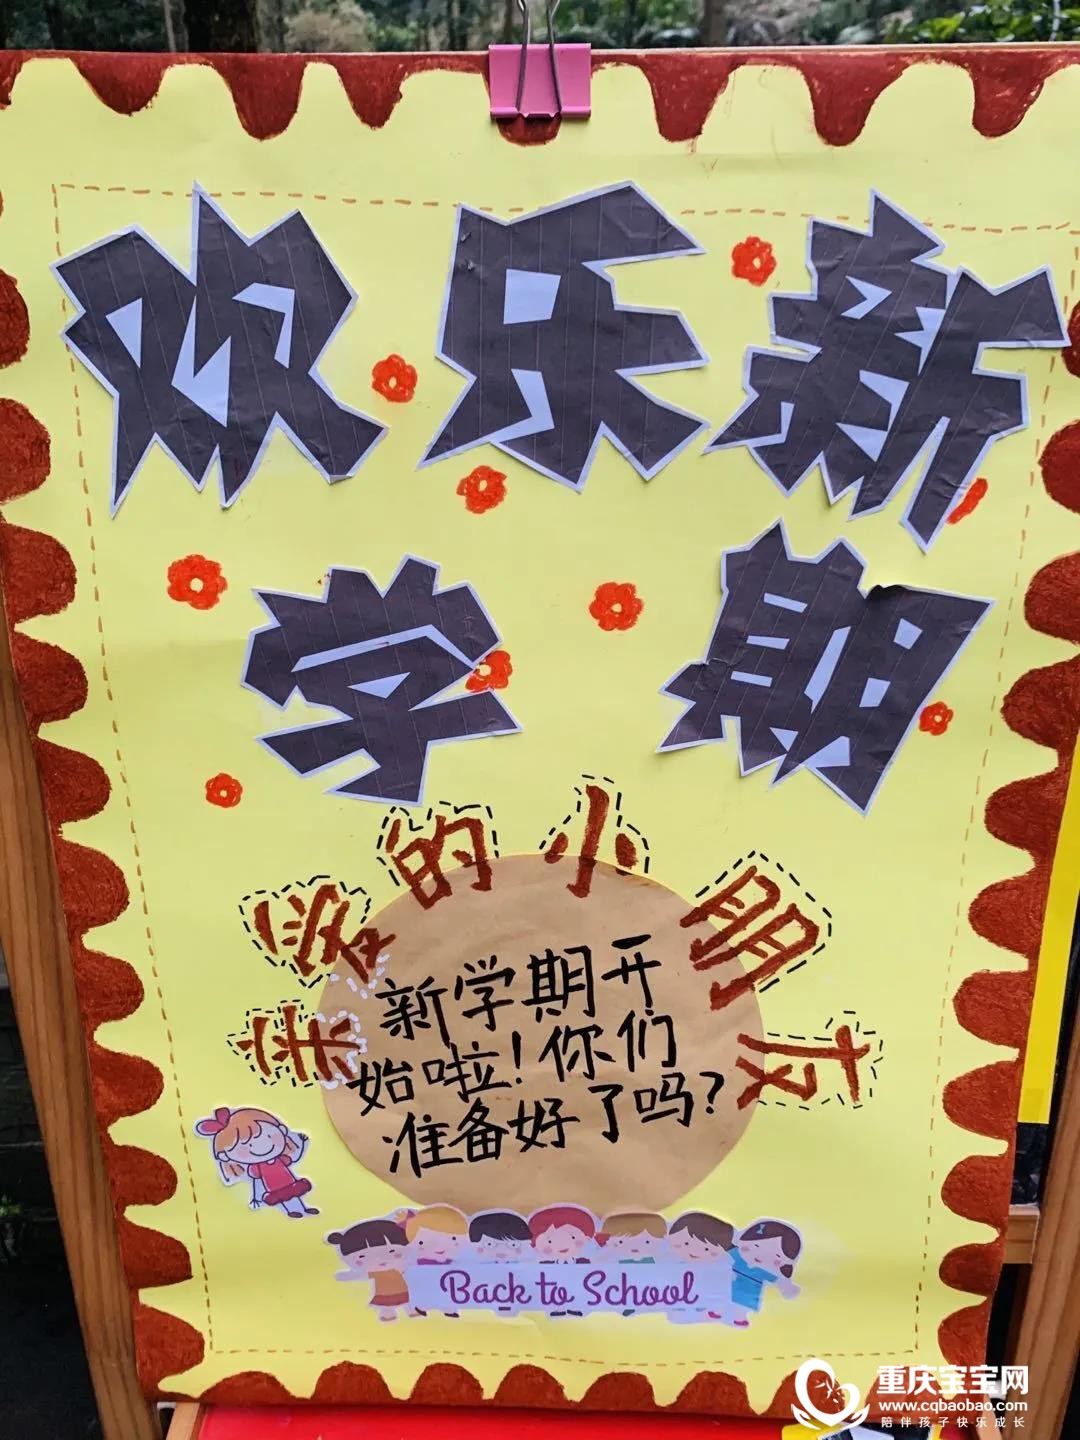 欢乐新
学期
亲爱的小朋友
新学期开
始啦！你们
准备好了吗？
Back to School
重庆宝宝网
www.cqbaobao.com
陪伴孩子快乐成长